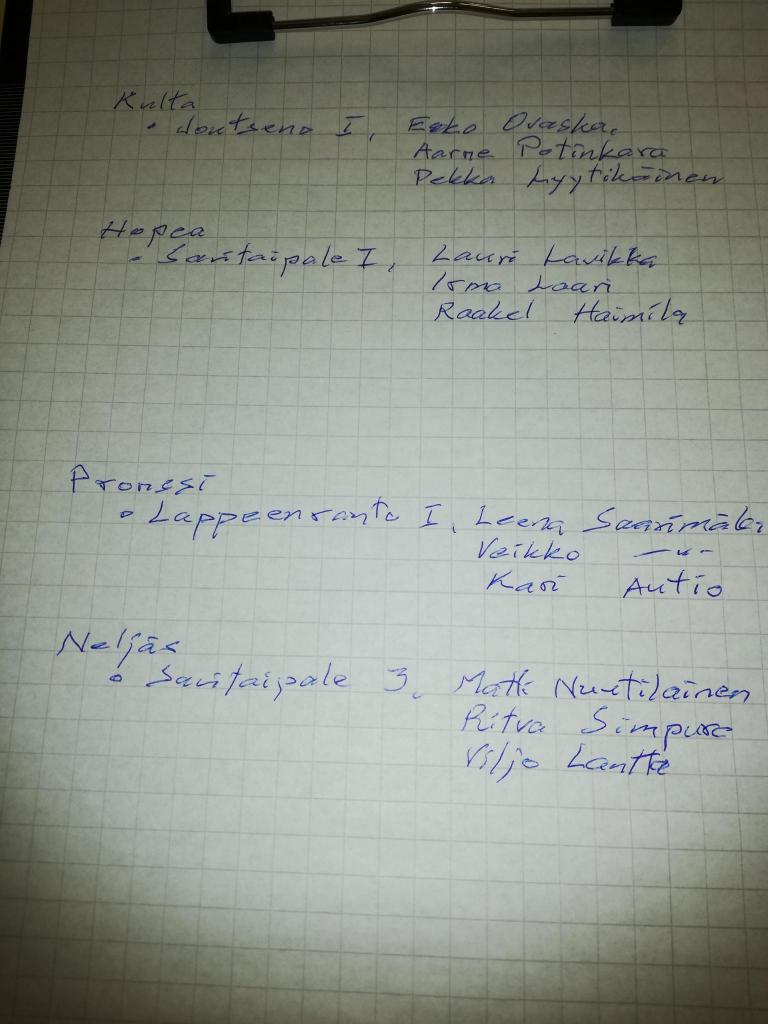 Kulta
• Joutseno I, Esko Ovaska,
Aarne Potinkara
Pekka Lyytikäinen
Hopea
• Savitaipale I, Lauri Lavikka
Irma Laari
Raakel Haimila
Pronssi
• Lappeenranta I, Leena Saarimäki
Veikko —〃—
Kari Autio
Neljäs
• Savitaipale 3, Matti Nuutilainen
Ritva Simpura
Viljo Lantta